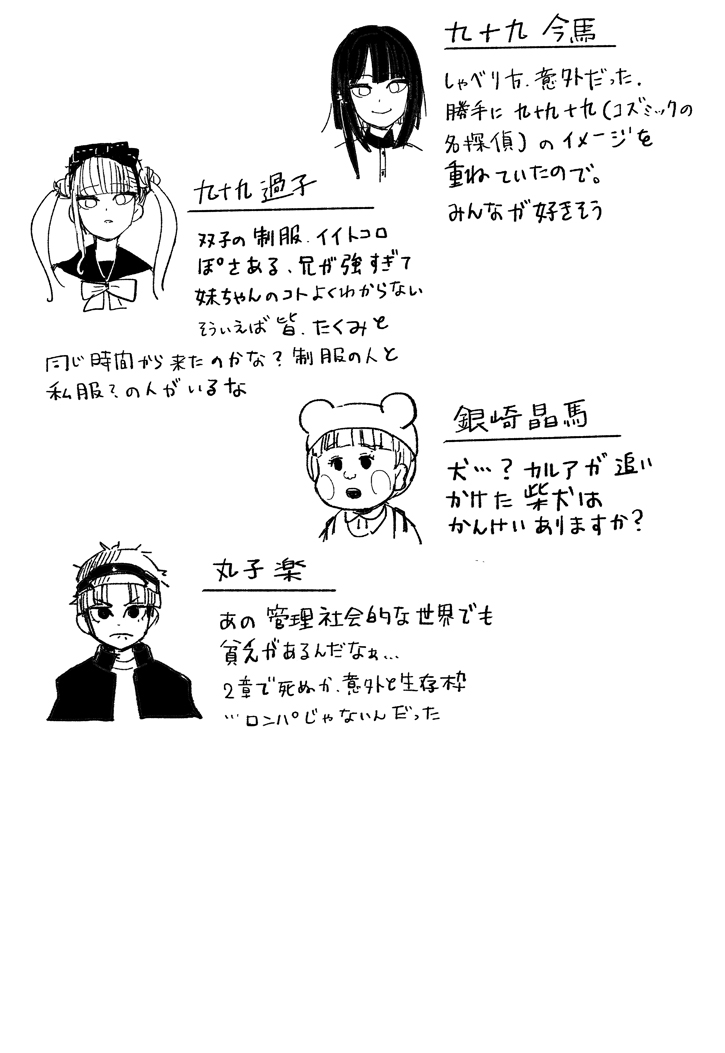 九十九 今馬
しゃべり方、意外だった、
勝手に九十九十九(コズミックの
名探偵)のイメージを
重ねていたので。
みんなが好きそう
九十九 過子
双子の制服、イイトコロ
ぽさある、兄が強すぎて
妹ちゃんのコトよくわからない
そういえば皆、たくみと
同じ時間から来たのかな?制服の人と
私服?の人がいるな
銀崎晶馬
犬…?カルアが追い
かけた柴犬は
かんけいありますか?
丸子 楽
あの管理社会的な世界でも
貧乏があるんだなぁ…
2章で死ぬか、意外と生存枠
…ロンパじゃないんだった